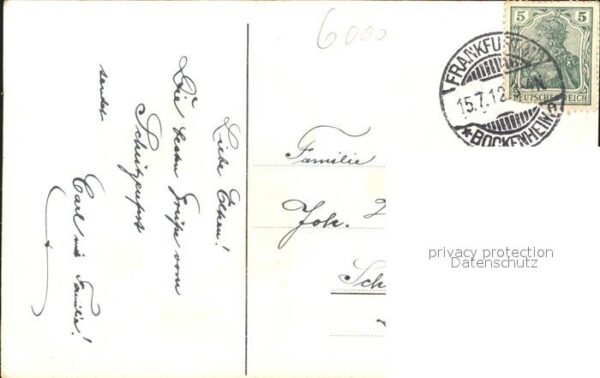 Liebe Eltern!
Die besten Grüße vom
Schützenfest
sendet
Carl und Familie!
6000
Familie
Joh.
Sch
5
DEUTSCHES REICH
FRANKFURT
15.7.12
*BOCKENHEIM
privacy protection
Datenschutz